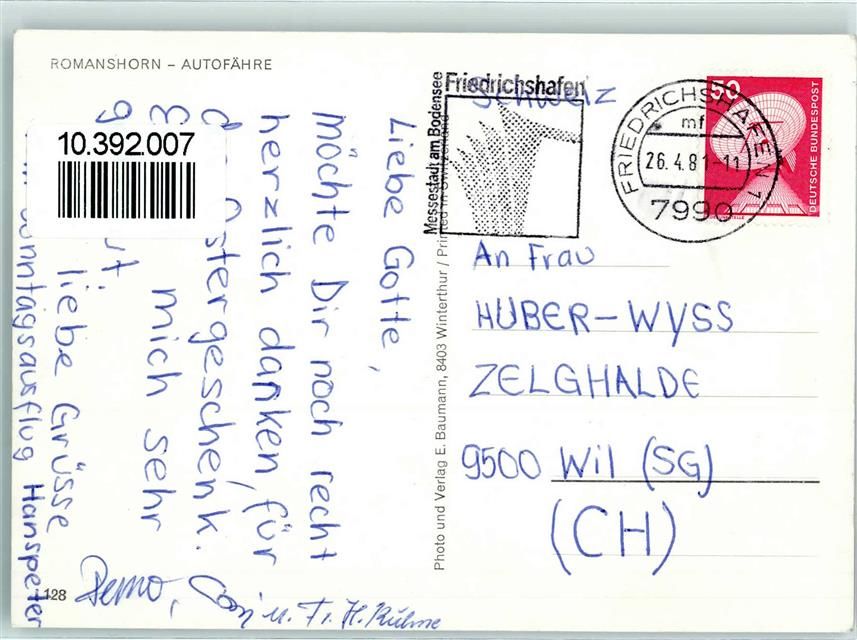 ROMANSHORN – AUTOFÄHRE
10.392.007
Liebe Gotte,
möchte Dir noch recht
herzlich danken, für
Ostergeschenk.
mich sehr
liebe Grüsse
Sonntagsausflug Hanspeter
Remo,
u. Fr. H. Kühne
128
Photo und Verlag E. Baumann, 8403 Winterthur / Printed in Switzerland
Messestadt am Bodensee
Friedrichshafen
Schweiz
FRIEDRICHSHAFEN 1
mf
26.4.81-11
7990
50
DEUTSCHE BUNDESPOST
An Frau
HUBER-WYSS
ZELGHALDE
9500 Wil (SG)
(CH)